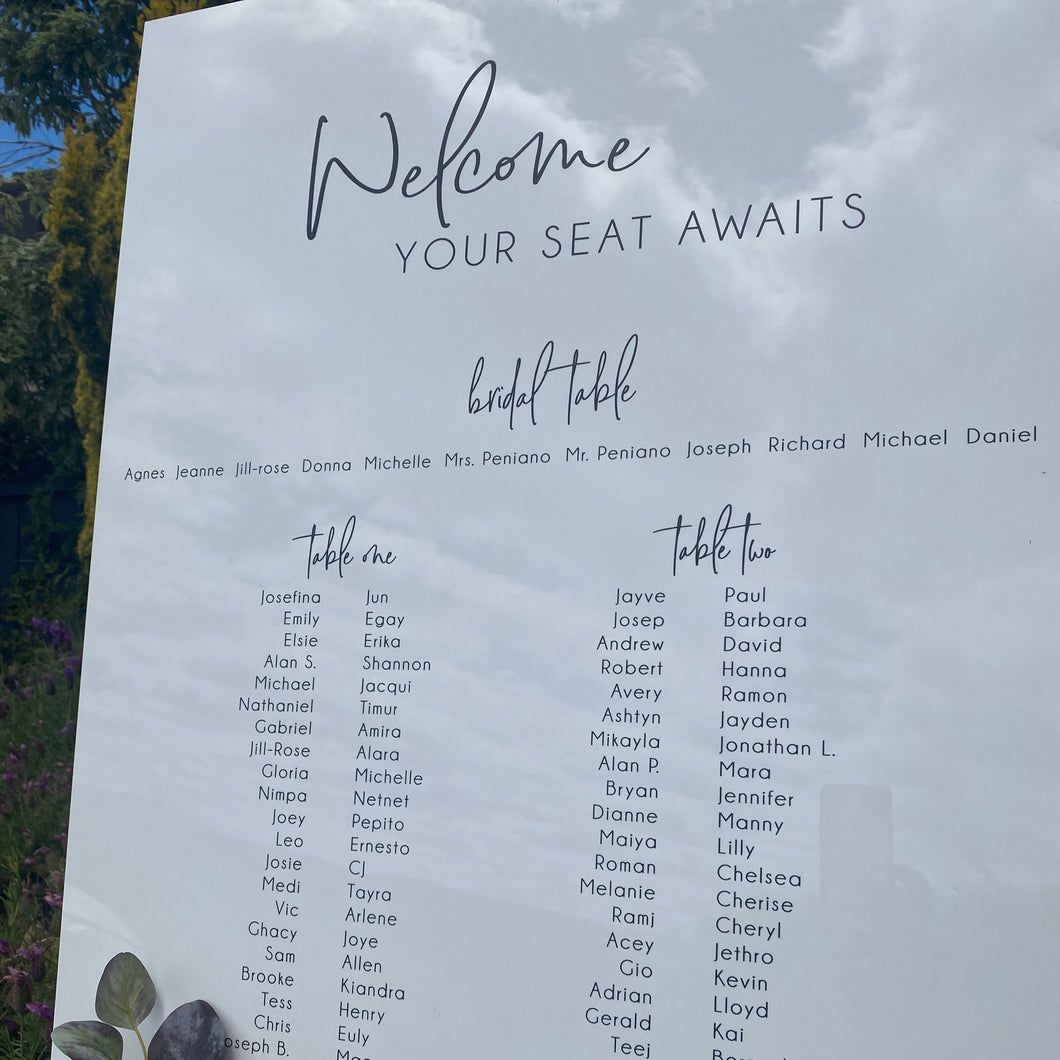 Welcome
YOUR SEAT AWAITS
bridal table
Agnes Jeanne Jill-rose Donna Michelle Mrs. Peniano Mr. Peniano Joseph Richard Michael Daniel
table one
Josefina Jun
Emily Egay
Elsie Erika
Alan S. Shannon
Michael Jacqui
Nathaniel Timur
Gabriel Amira
Jill-Rose Alara
Gloria Michelle
Nimpa Netnet
Joey Pepito
Leo Ernesto
Josie CJ
Medi Tayra
Vic Arlene
Ghacy Joye
Sam Allen
Brooke Kiandra
Tess Henry
Chris Euly
oseph B.
table two
Jayve Paul
Josep Barbara
Andrew David
Robert Hanna
Avery Ramon
Ashtyn Jayden
Mikayla Jonathan L.
Alan P. Mara
Bryan Jennifer
Dianne Manny
Maiya Lilly
Roman Chelsea
Melanie Cherise
Ramj Cheryl
Acey Jethro
Gio Kevin
Adrian Lloyd
Gerald Kai
Teej